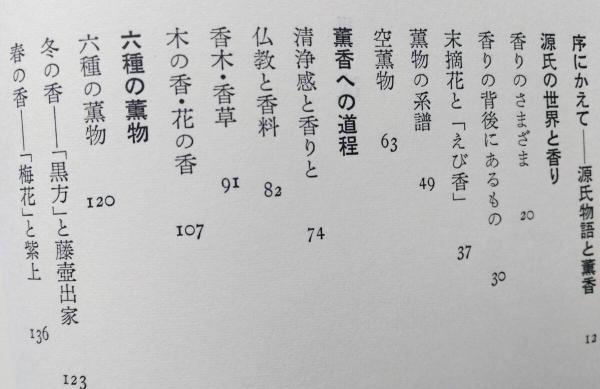 序にかえて――源氏物語と薫香 12
源氏の世界と香り
香りのさまざま 20
香りの背後にあるもの 30
末摘花と「えび香」 37
薫物の系譜 49
空薫物 63
薫香への道程
清浄感と香りと 74
仏教と香料 82
香木・香草 91
木の香・花の香 107
六種の薫物
六種の薫物 120
冬の香――「黒方」と藤壺出家 123
春の香――「梅花」と紫上 136